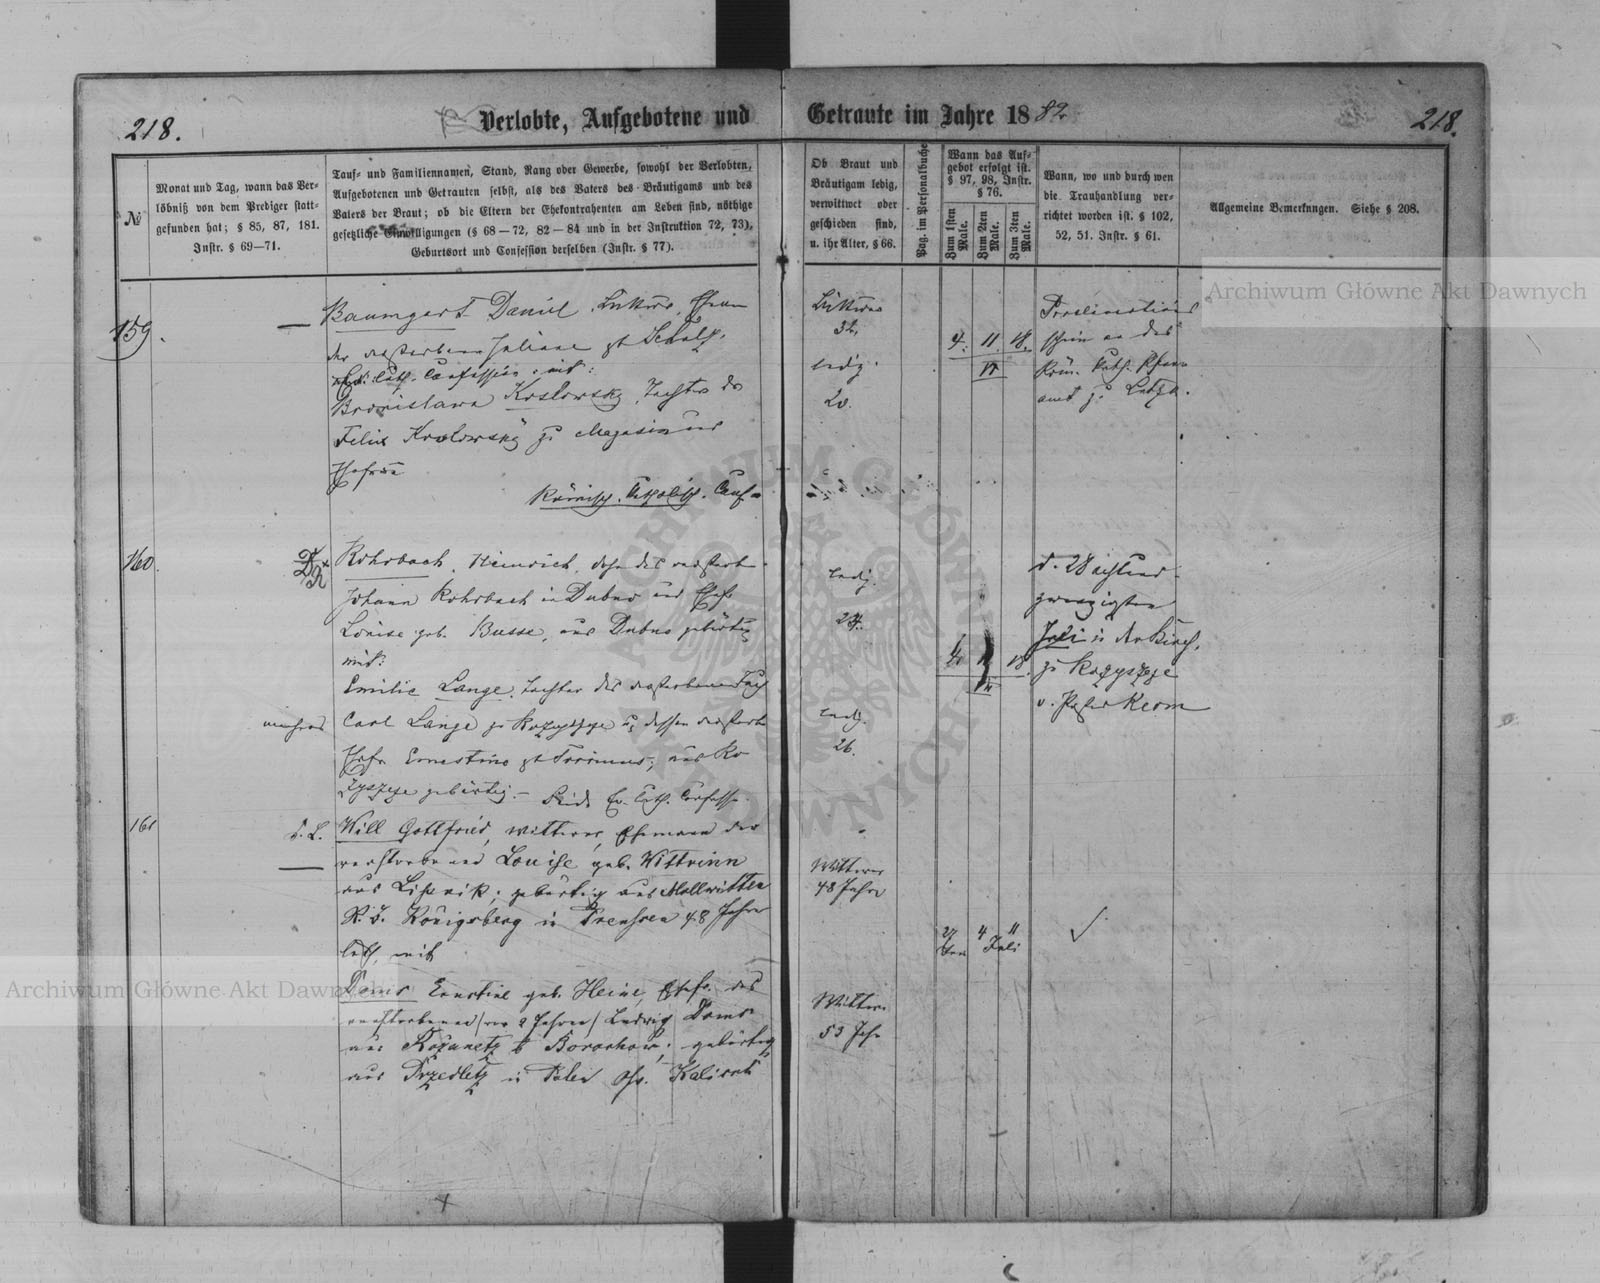 218.
Verlobte, Aufgebotene und
Getraute im Jahre 1882
218.
№
Monat und Tag, wann das Ver-
löbniß von dem Prediger statt-
gefunden hat; § 85, 87, 181.
Instr. § 69—71.
Tauf- und Familiennamen, Stand, Rang oder Gewerbe, sowohl der Verlobten,
Aufgebotenen und Getrauten selbst, als des Vaters des Bräutigams und des
Vaters der Braut; ob die Eltern der Ehekontrahenten am Leben sind, nöthige
gesetzliche Einwilligungen (§ 68—72, 82—84 und in der Instruktion 72, 73),
Geburtsort und Confession derselben (Instr. § 77).
Ob Braut und
Bräutigam ledig,
verwittwet oder
geschieden sind,
u. ihr Alter, § 66.
Pag. im Personalbuche
Wann das Auf-
gebot erfolgt ist.
§ 97, 98, Instr.
§ 76.
Zum 1sten Male.
Zum 2ten Male.
Zum 3ten Male.
Wann, wo und durch wen
die Trauhandlung ver-
richtet worden ist. § 102,
52, 51. Instr. § 61.
Allgemeine Bemerkungen. Siehe § 208.
159.
Baumgart Daniel, Wittwer, Ehem
der verstorbenen Juliane gb Schulz.
Ev. Luth. Confession: mit:
Bronislawa Koslowsky, Tochter des
Felix Koslowsky zu
Römisch. Catholisch. Conf
Wittwer
32.
ledig.
20.
4. 11. 18.
VI
schein an das
Röm. Kath. Pfarr
amt zu Lutzk.
160.
Rohrbach, Heinrich, Sohn des verstorb.
Johann Rohrbach in Dubno und Ehefr
Louise geb. Busse, aus Dubno gebürtig
mit:
Emilie Lange, Tochter des verstorbenen Tuch
machers Carl Lange zu Rozyszcze u. dessen verstorb
Ehefr. Ernestine gb , aus Ro
zyszcze gebürtig.— Beide Ev. Luth. Confess.
ledig.
24.
ledig.
26.
18.
d. 28 achtund
zwanzigsten
Juli in der Kirche
zu Rozyszcze
v. Pastor Kerm
161
Will Gottfried, Wittwer, Ehemann der
verstorbenen Louise geb. Wittrinn
aus Lipnik; gebürtig aus Mollwitten
R. B. Königsberg in Preussen 48 Jahre
luth, mit
Doms Ernstine geb. Heine, Ehefr. des
verstorbenen /vor 2 Jahren/ Ludwig Doms
aus Rozanetz b Borochow; gebürtig
aus Przedletz in Polen Gv. Kalisch
Wittwer
48 Jahre
Wittwe
53 Jahr
27 4 11
Juli
Archiwum Główne Akt Dawnych
Archiwum Główne Akt Dawnych
ARCHIWUM GŁÓWNE AKT DAWNYCH